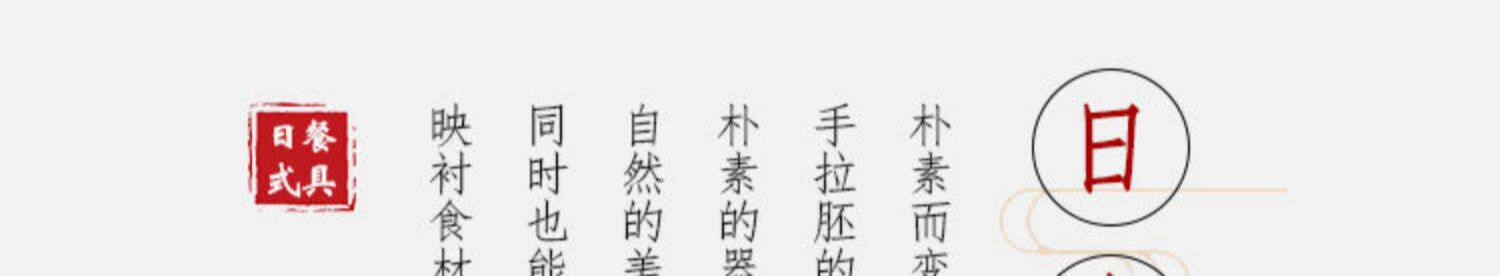 日
朴素而变
手拉胚的
朴素的器
自然的美
同时也能
映衬食材
餐具
日式